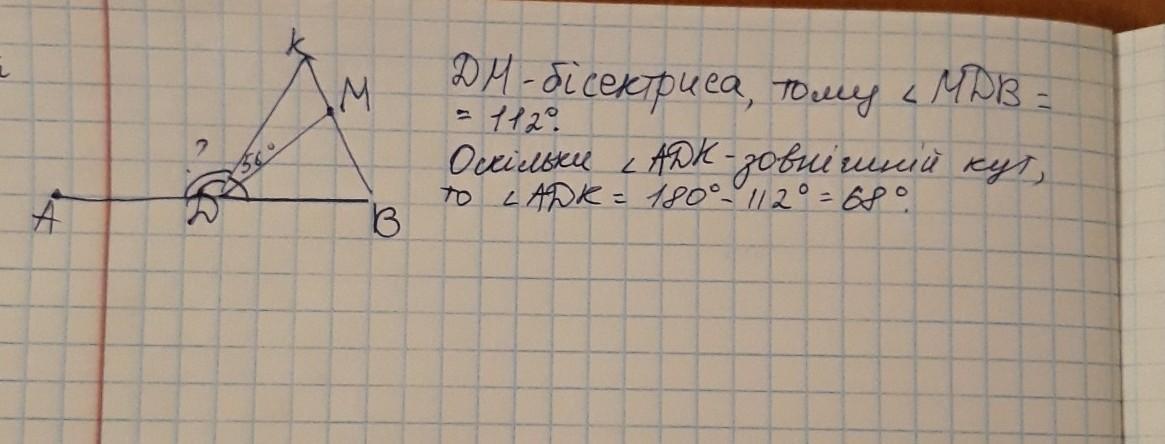 K
M
?
56°
A
D
B
DM - бісектриса, тому ∠MDB =
= 112°.
Оскільки ∠ADK - зовнішній кут,
то ∠ADK = 180° - 112° = 68°.